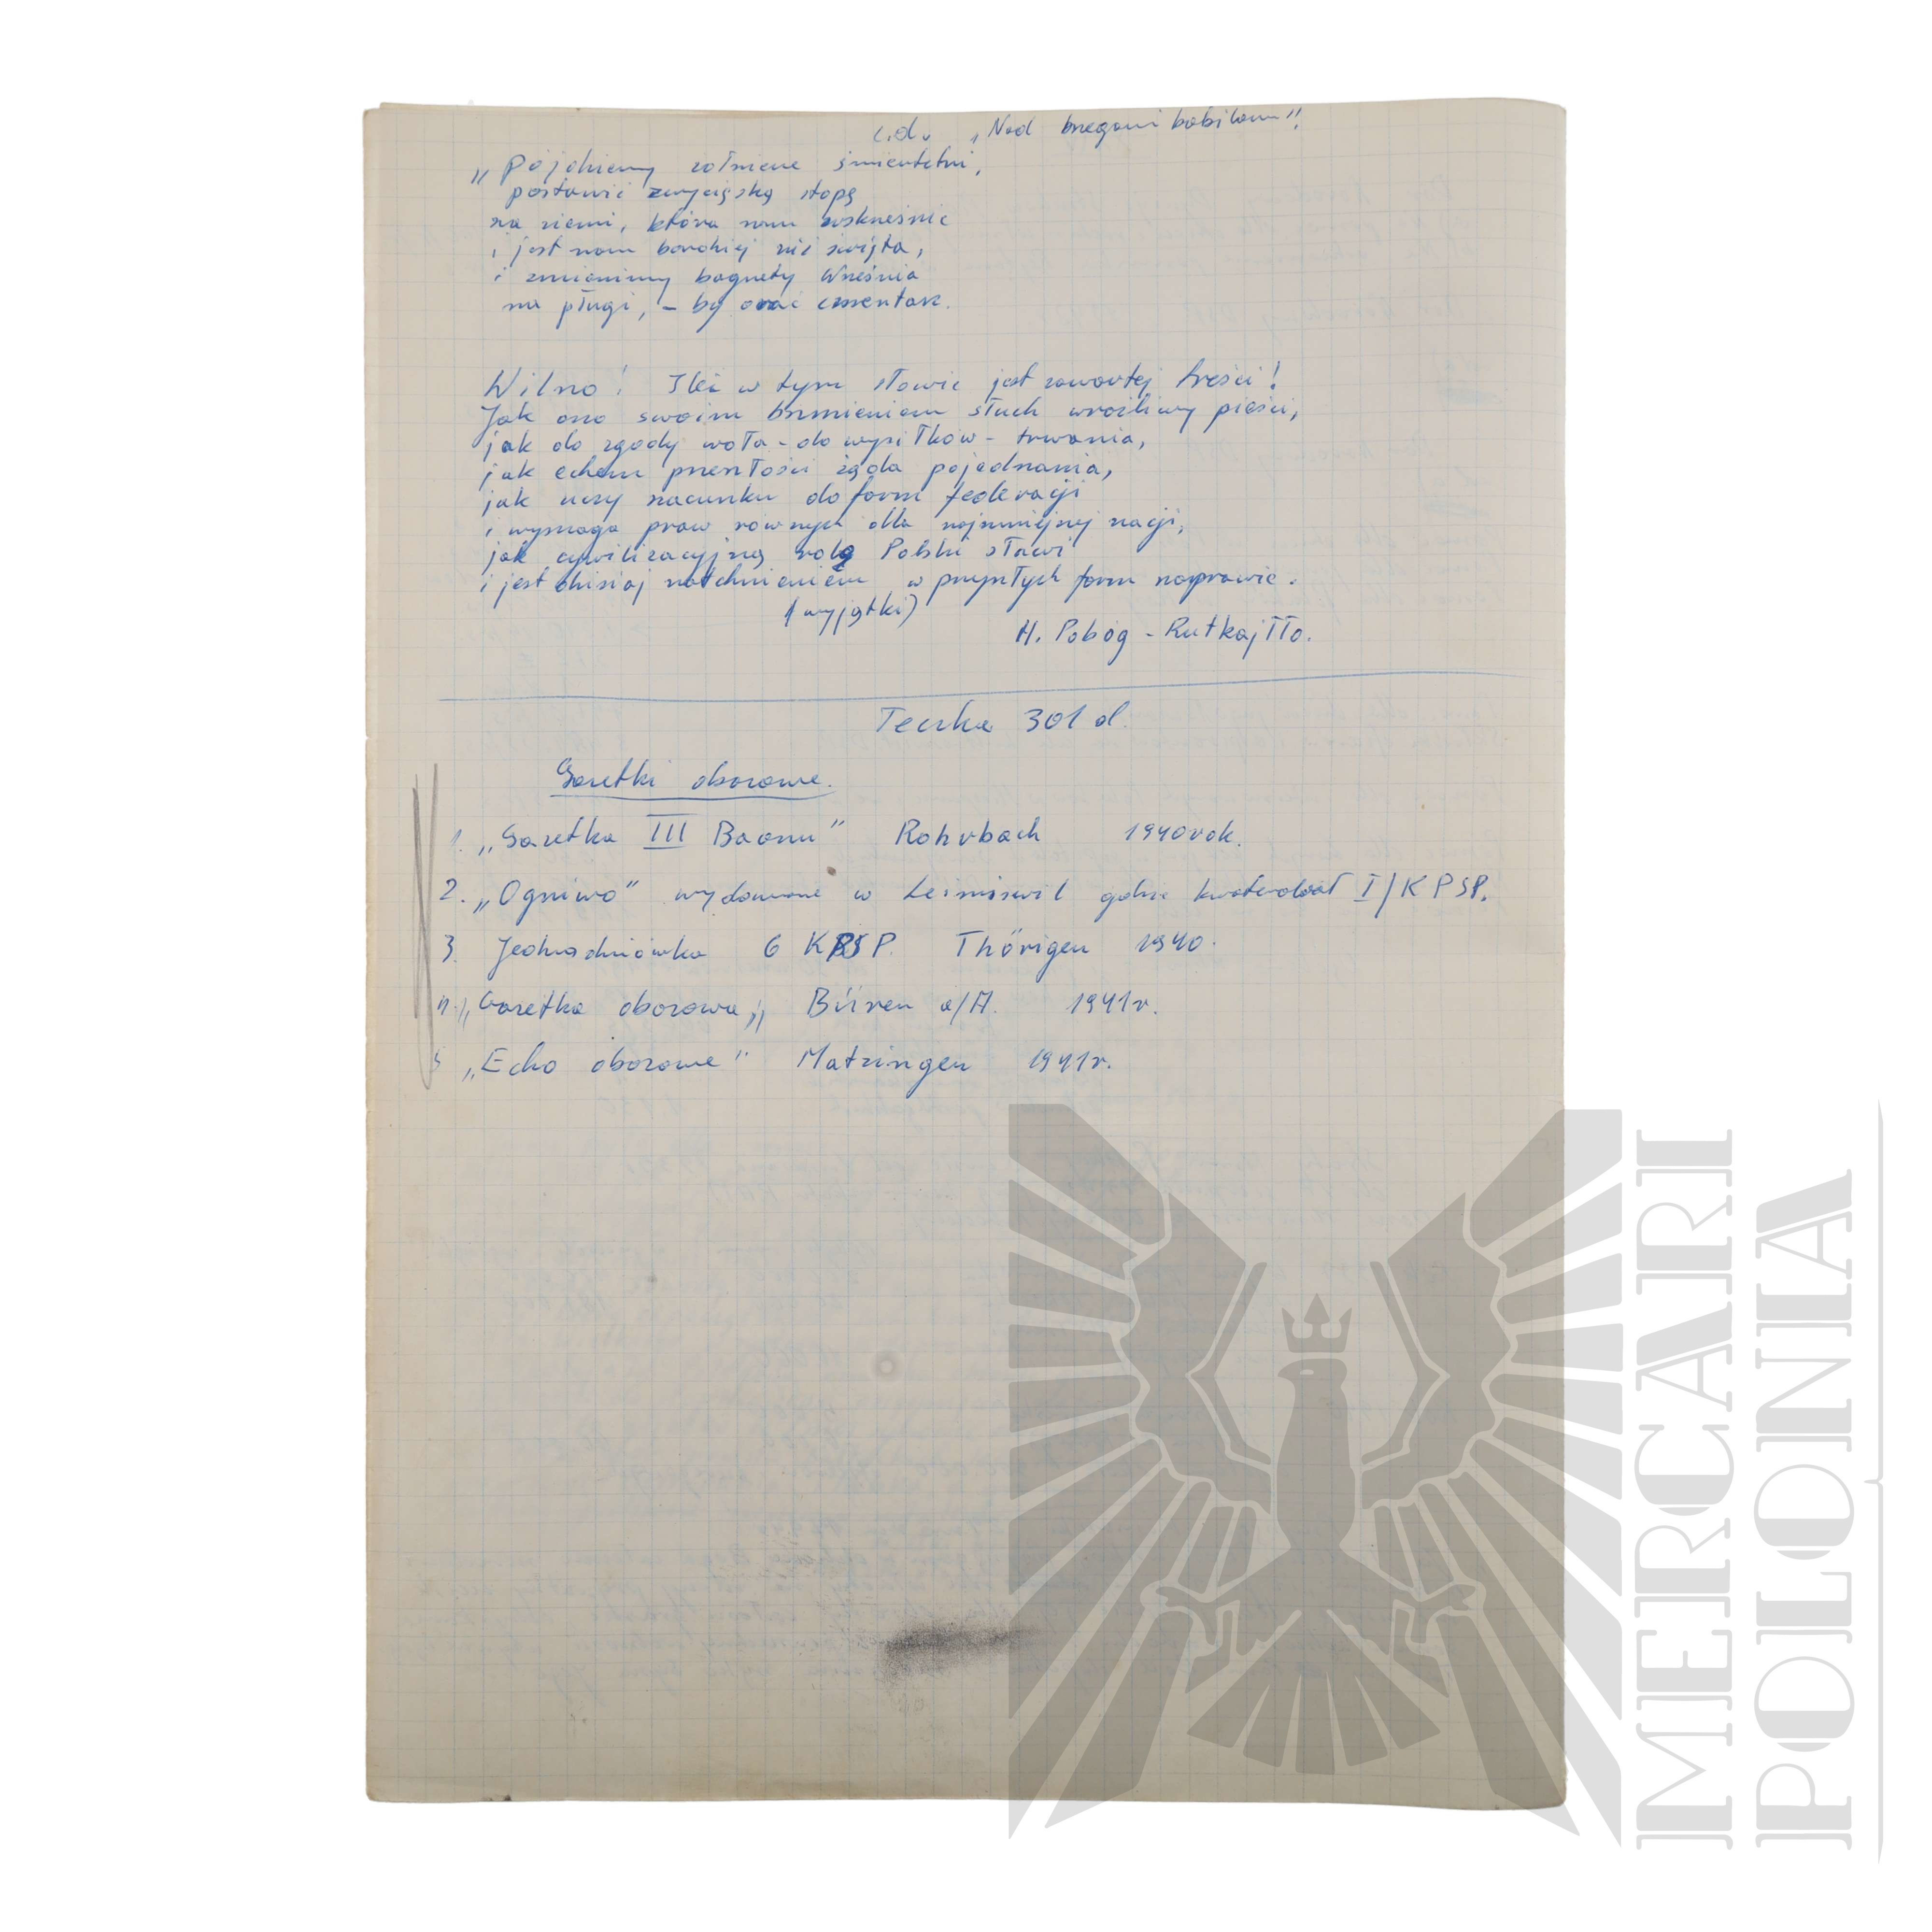 c.d. „Nad brzegami babilonu".
„Pójdziemy żołnierze śmiertelni,
postawić zwycięską stopę
na ziemi, która nam wskrześnie
i jest nam bardziej niż święta,
i zmienimy bagnety Września
na pługi, – by orać cmentarz.
Wilno! Ileż w tym słowie jest zawartej treści!
Jak ono swoim brzmieniem słuch wrażliwy pieści,
jak do zgody woła – do wysiłków – trwania,
jak echem przeszłości żąda pojednania,
jak uczy szacunku do form federacji
i wymaga praw równych dla najmniejszej nacji,
jak cywilizacyjną rolę Polski sławi
i jest dzisiaj natchnieniem w przyszłych form naprawie.
(wyjątki)
H. Pobóg - Rutkajtło.
Teczka 301 d.
Gazetki obozowe.
1. „Gazetka III Baonu" Rohrbach 1940 rok.
2. „Ogniwo" wydawane w Leimiswil gdzie kwaterował I/K PSP.
3. Jednodniówka 6 KPSP. Thörigen 1940.
4. „Gazetka obozowa„ Büren a/A. 1941 r.
5 „Echo obozowe" Matzingen 1941 r.
IMERCARI
POLONIA